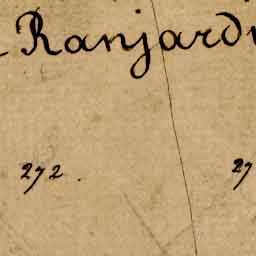 Ranjardi
272. 27